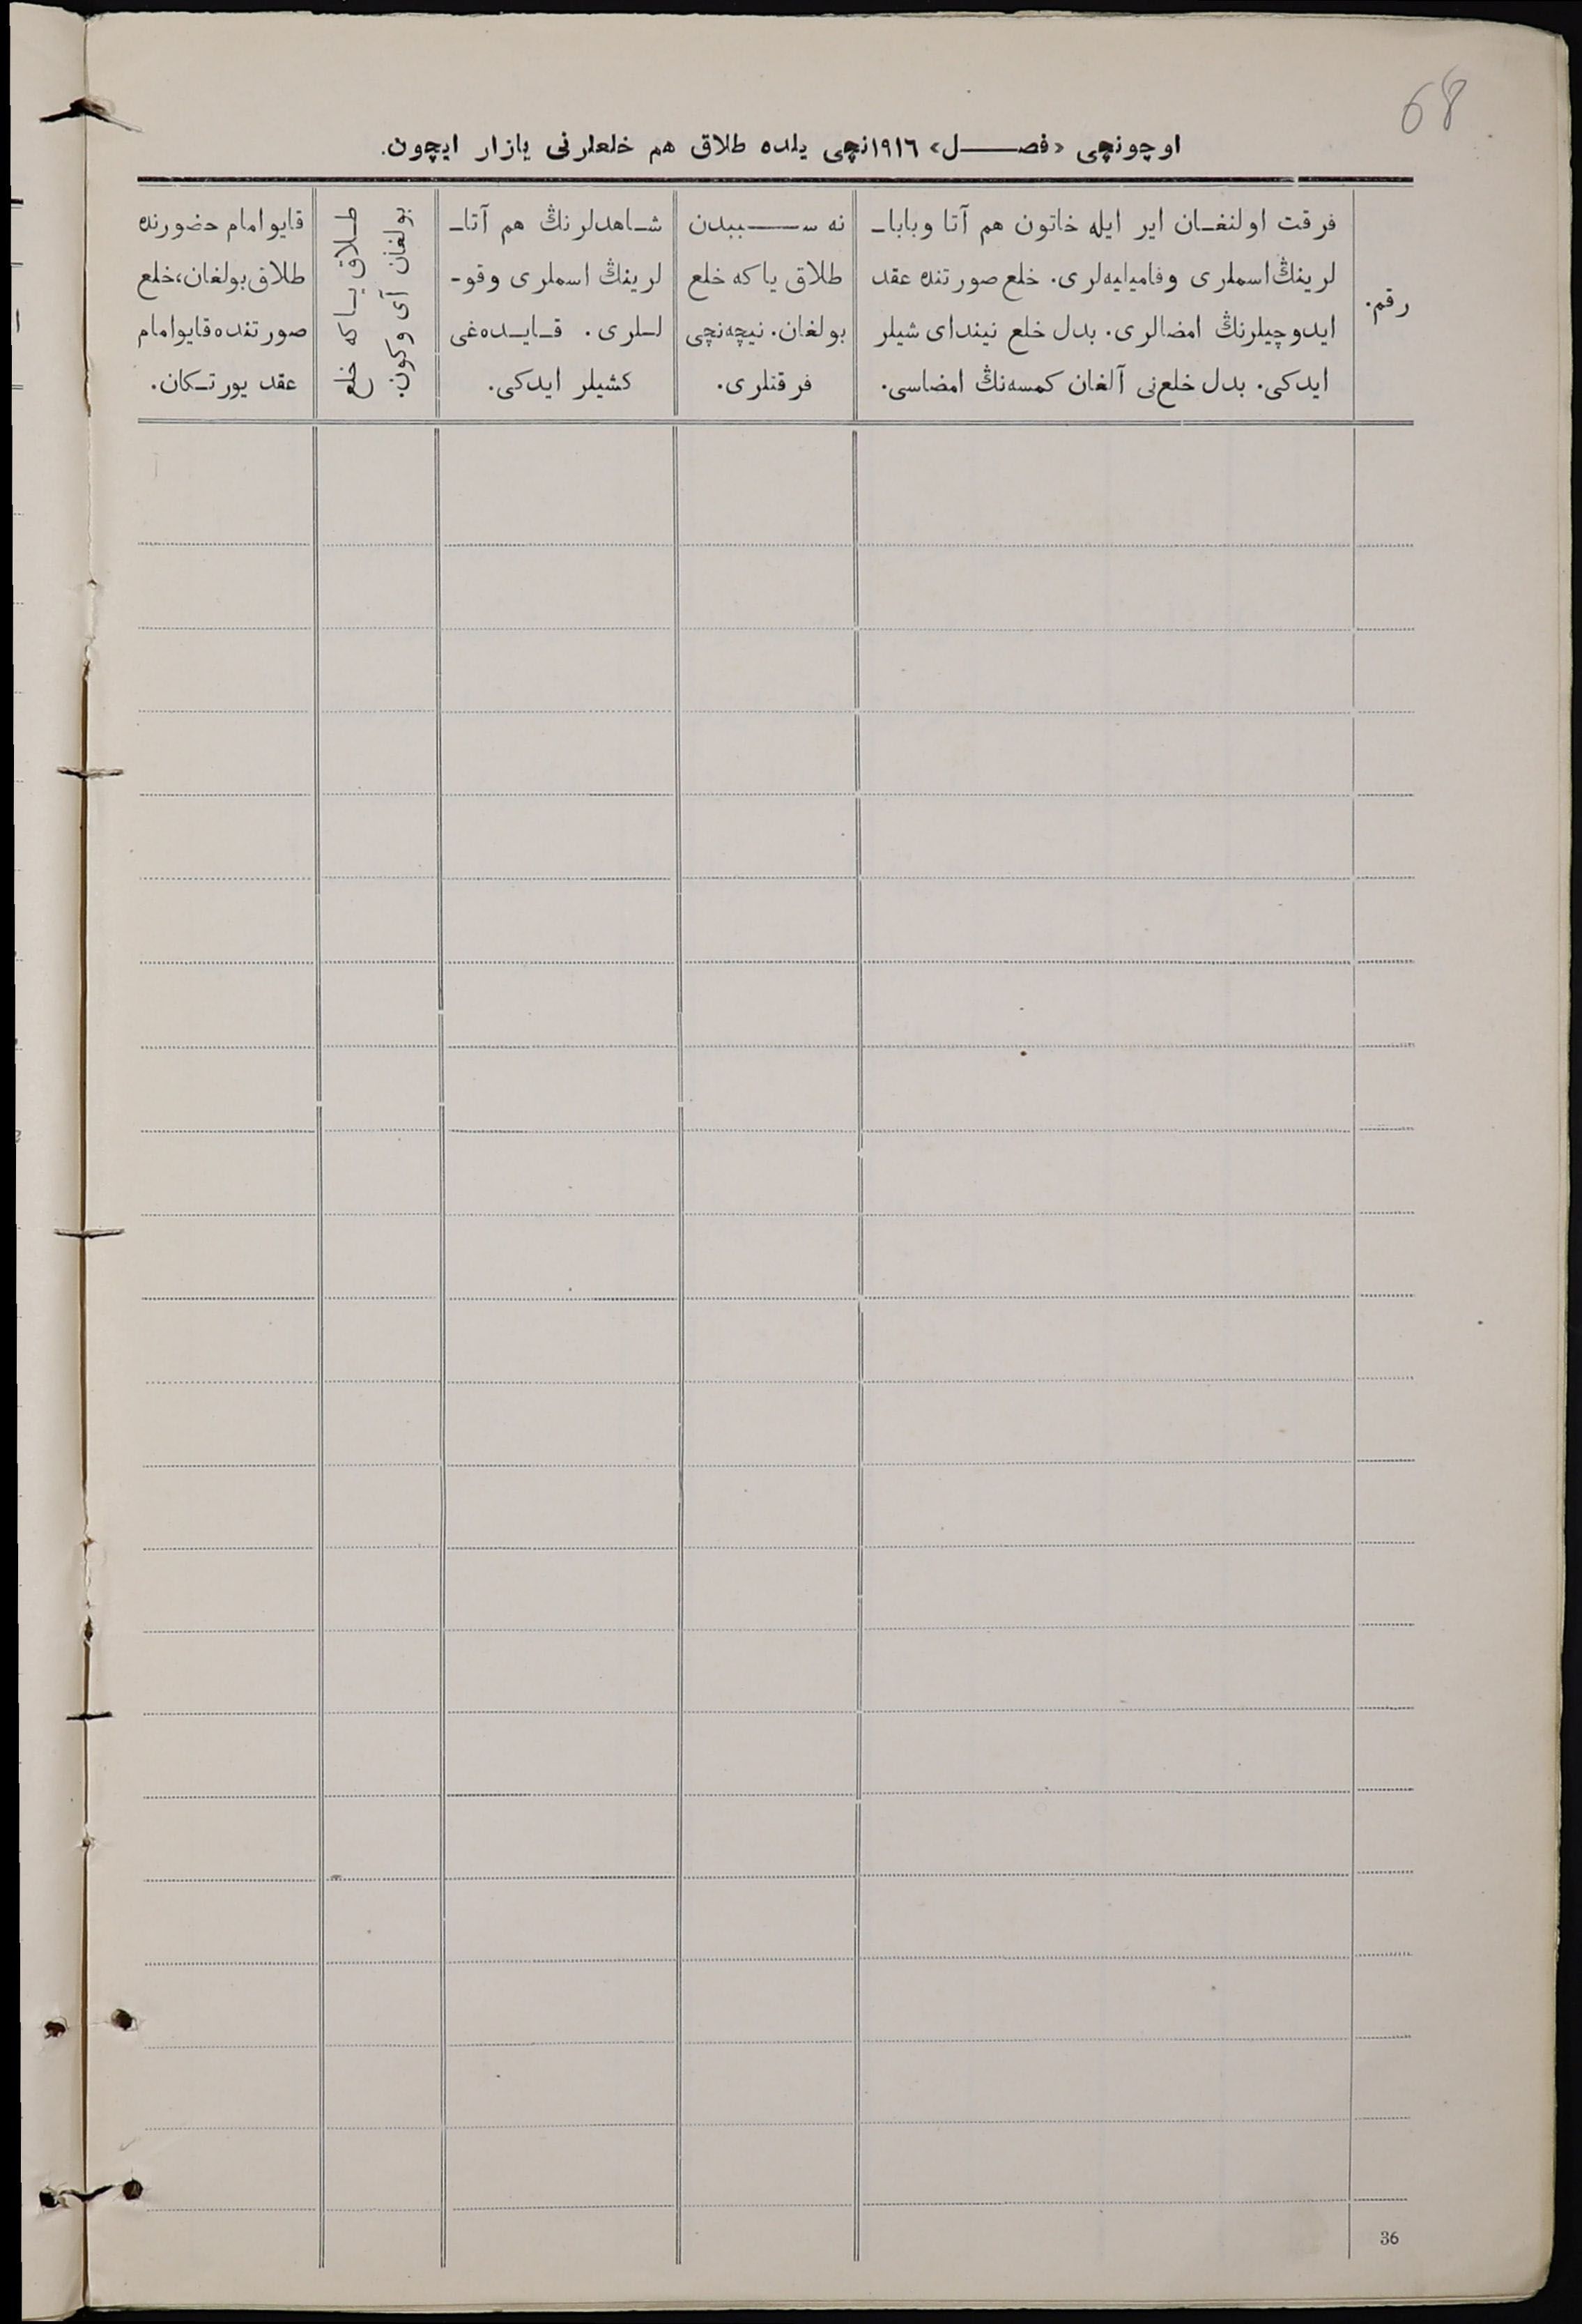 68
اوچونچی «فصل» ١٩١٦نچی یلده طلاق هم خلعلرنی یازار ایچون.
رقم.
فرقت اولنغان ایر ایله خاتون هم آتا وبابا-
لرینڭ اسملری وفامیلیه‌لری. خلع صورتنده عقد
ایدوچیلرنڭ امضالری. بدل خلع نیندای شیلر
ایدکی. بدل خلع‌نی آلغان کمسه‌نڭ امضاسی.
نه سببدن
طلاق یا که خلع
بولغان. نیچه‌نچی
فرقتلری.
شاهدلرنڭ هم آتا-
لرینڭ اسملری وقو-
للری. قایده‌غی
کشیلر ایدکی.
طلاق یا که خلع
بولغان آی وکون.
قایو امام حضورنده
طلاق بولغان، خلع
صورتنده قایو امام
عقد یورتکان.
36